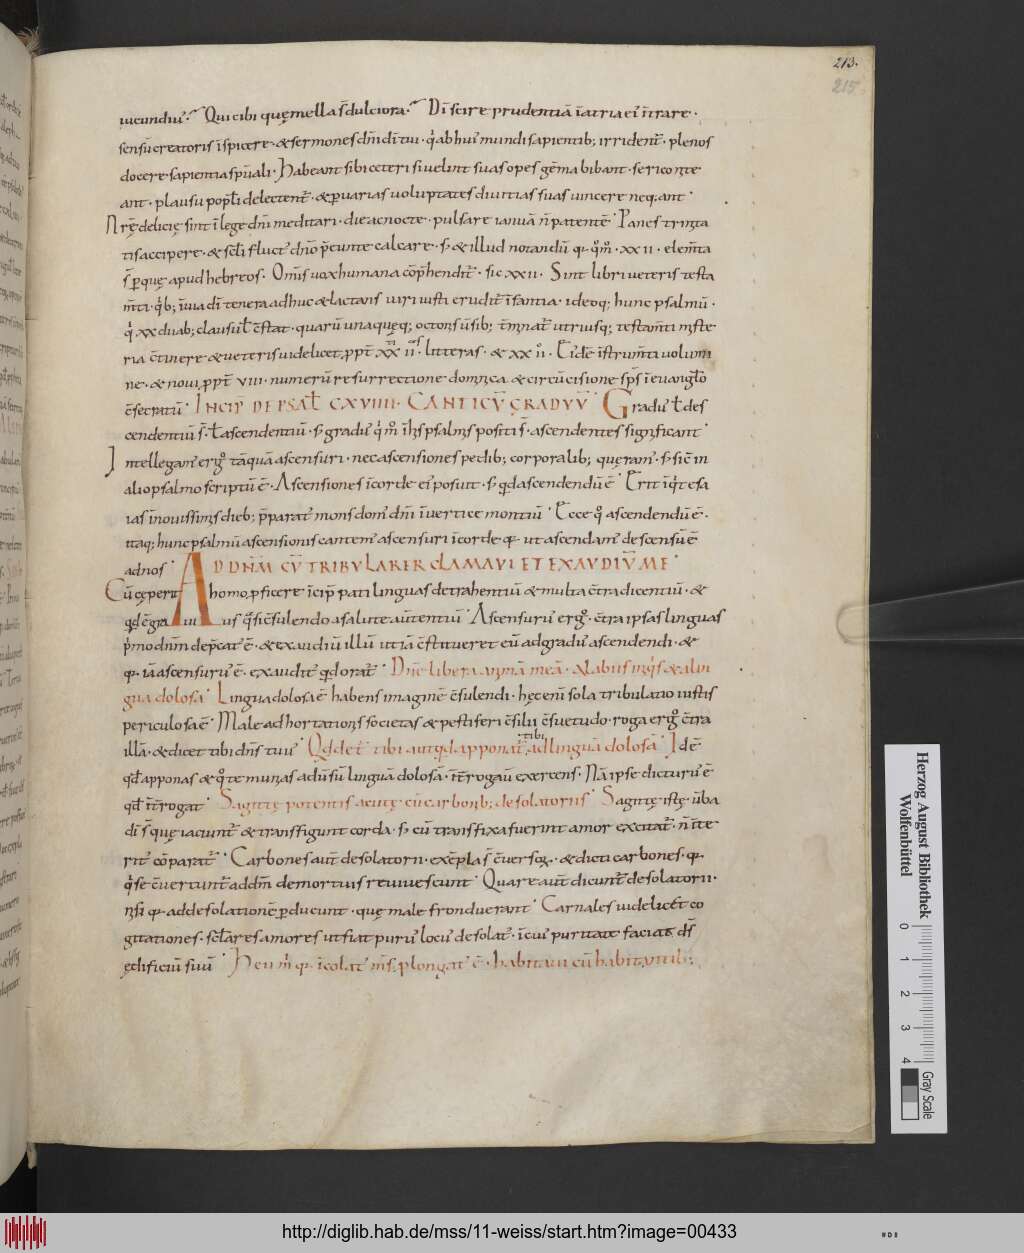 213.
215
iucundiuˢ. Qui cibi quę mella s̄ dulciora. Dī scire prudentiā īatria eiˢ īrare.
sensū creatoris īspicere. & sermones dn̄i dī tui. q̇ ab huiˢ mundi sapientib; irrident᷑. plenos
docere. sapientia spūali. Habeant sibi ceteri si uelint suas opes gēma bibant. serico nite
ant. plausu popl̄i delectent᷑. & p uarias uoluptates diuitias suas uincere neq;ant.
Nr̄ę delicię sint ī lege dn̄i meditari. die ac nocte. pulsare ianuā n̄ patentē. Panes trinita
tis accipere. & scl̄i fluctˢ dn̄o p̄eunte calcare. s; & illud notandū qˢ. XXII. elem̄ta
s̄ p quę apud hebreos. Omīs uox humana cōp̄hendit᷑. sic XXII. Sint libri ueteris testa
m̄ti. q̇b; īuia dī tenera adhuc & lactans uiri iusti erudit᷑ īfantia. ideoq; hunc psalmū.
q̇ XX duab; clausul̄ c̄stat. quarū unaquęq; octo uersib; t̄minat᷑ utriusq; testam̄ti myste
ria c̄tinere & ueteris uidelicet, ppt XX II litteras. & XX II. Eidē īstrum̄ti uolumi
ne. & noui, ppt VIII. numerū resurrectione dominica & circūcisione sps̄ ī euanglo
c̄secratū. INCIP DE PSAL CXVIIII. CANTICV̄ GRADVV̄ Graduˢ l̄ des
cendentiū s̄. l̄ ascendentiū. s; graduˢ q̇ ī his psalmis positi s̄. ascendentes significant.
Intellegamˢ ergo tāquā ascensuri. nec ascensiones pedib; corporalib; quęramˢ. s; sic̄ in
alio psalmo scriptū ē. Ascensiones ī corde eiˢ posuit. s; qd ascendendū ē. Erit īqt esa
ias ī nouissimis dieb; p̄paratˢ mons domˢ dn̄i ī uertice montiū. Ecce qo ascendendū ē.
itaq; hunc psalmū ascensionis cantemˢ ascensuri ī corde qˢ. ut ascendamˢ descensū ē
ad nos. AD DNM CV̄ TRIBVLARER CLAMAVI ET EXAVDIV̄ ME.
Cū cęperit homo, pficere īcip pati linguas detrahentiū & multa c̄tradicentiū. &
qd ē grauiˢ quasi c̄sulendo a salute autentiū. Ascensurˢ ergo c̄tra ipsas linguas
p̄mo dn̄m dep̄catˢ ē. & exaudiuˢ illū ut iā c̄stitueret eū ad gradˢ ascendendi. &
qˢ. iā ascensurˢ ē. exaudit᷑ qd orat᷑. Dn̄e libera animā meā. a labiis iniqis & a lin
gua dolosa. Lingua dolosa ē habens imaginē c̄sulendi. hęc enī sola tribulatio iustis
periculosa ē. Male adhortationis societas & pestiferi c̄silii c̄suetudo. roga ergo c̄tra
illā. & dicet tibi dn̄s tuuˢ. Qd det᷑ tibi aut qd apponat᷑ tibi, ad linguā dolosā. Id ē
qd apponas & qo te munias aduˢsū linguā dolosā. Īt̄rogauˢ exercens. Nā ipse dicturˢ ē
qd īt̄rogat. Sagittę potentis acutę cū carbonib; desolatoriis. Sagittę istę uˢba
dī s̄. quę iaciunt᷑ & transfigunt corda. s; cū transfixa fuerint amor excitat᷑. n̄ inte
ritˢ cōparat᷑. Carbones aut desolatorii. exēpla s̄ c̄uersoꝝ. & dicti carbones. qˢ.
q̇ se c̄uertunt᷑ ad dm̄ de mortuis reuiuescunt. Quare aut dicunt᷑ desolatorii.
nisi qˢ. ad desolationē p ducunt. quę male fronduerant. Carnales uidelicet co
gitationes. sclares amores ut fiat purˢ locˢ desolatˢ. ī cuiˢ puritate faciat ds̄
ędificiū suū. Heu m̄ qˢ. īcolatˢ mˢs, plongatˢ ē. habitaui cū habitantib;
Herzog August Bibliothek
Wolfenbüttel
0 1 2 3 4
Gray Scale
http://diglib.hab.de/mss/11-weiss/start.htm?image=00433